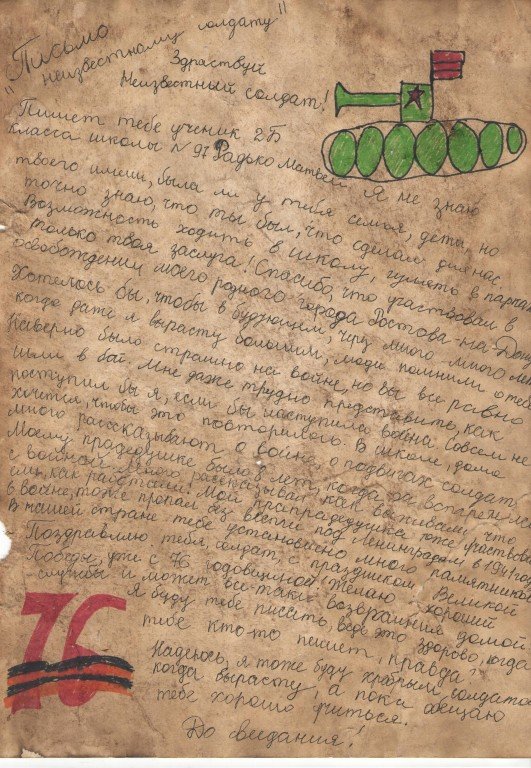 "Письмо
неизвестному солдату"
Здраствуй
Неизвестный солдат!
Пишет тебе ученик 2Б
класса школы №97 Радько Матвей. Я не знаю
твоего имени, была ли у тебя семья, дети, но
точно знаю, что ты был, что сделал для нас.
Возможность ходить в школу, гулять в парке
только твоя заслуга! Спасибо, что участвовал в
освобождении моего родного города Ростова-на-Дону
Хотелось бы, чтобы в будующем, через много-много лет
когда даже я вырасту большим, люди помнили о тебе
Наверно было страшно на войне, но вы все равно
шли в бой. Мне даже трудно представить, как
поступил бы я, если бы наступила война. Совсем не
хочется, чтобы это повторилось. В школе, дома
много рассказывают о войне, о подвигах солдат
Моему прадедушке было 8 лет, когда он встретился
с войной. Много рассказывал как выживали, что
ели, как работали. Мой прапрадедушка тоже участвовал
в войне, тоже пропал без вести под Ленинградом в 1941г
В нашей стране тебе установлено много памятников
Поздравляю тебя, солдат, с праздником Великой
Победы, уже с 76 годовщиной! Желаю хорошей
службы и может все таки возвращения домой
Я буду тебе писать, ведь это здорово, когда
тебе кто-то пишет, правда?
Надеюсь, я тоже буду храбрым солдатом
когда вырасту, а пока обещаю
тебе хорошо учиться!
До свидания!
76